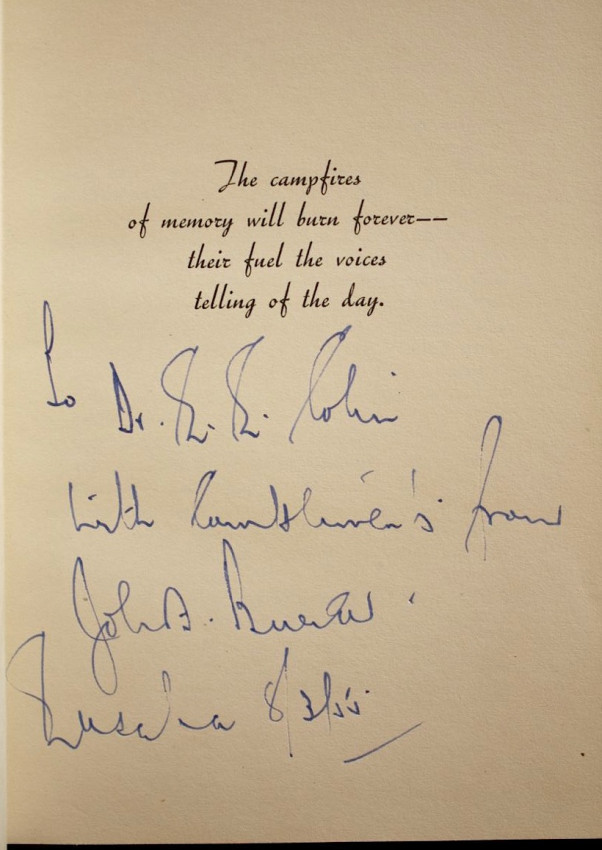 The campfires
of memory will burn forever——
their fuel the voices
telling of the day.
To Dr. R. R. Colin
with from
John B.
Lusaka 8/3/55